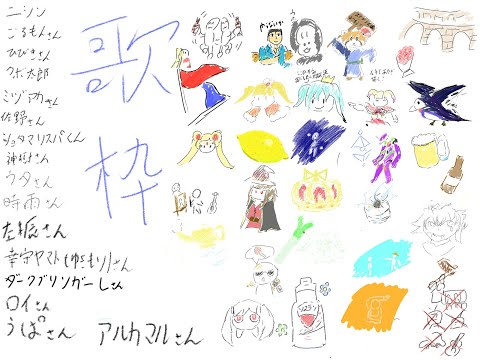 ニシン
ごるもんさん
ひびきさん
フホ太郎
ミヅアカさん
佐野さん
ショタマリスパくん
神坂さん
ウタさん
時雨さん
左振さん
幸宇ヤマト(ゆきもり)さん
ダークブリンガーしさん
ロイさん
うぱさん
アルカマルさん
歌枠